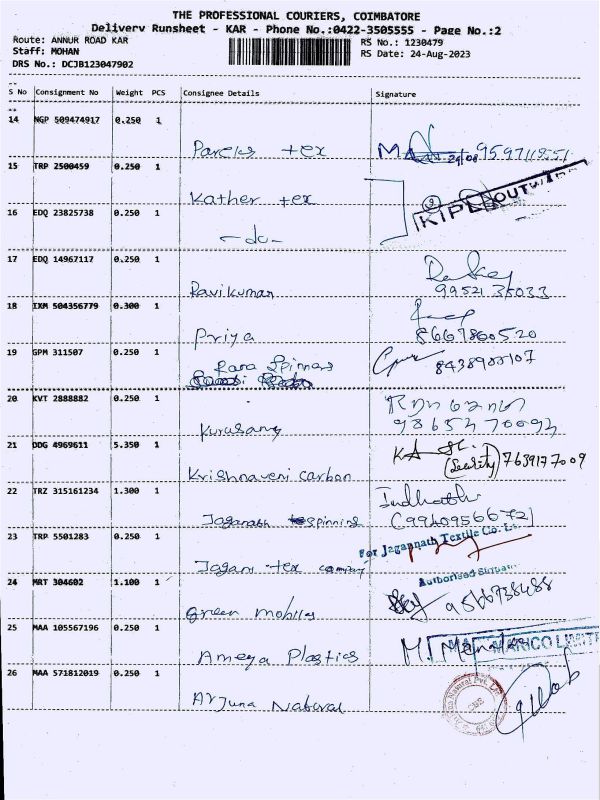 THE PROFESSIONAL COURIERS, COIMBATORE
Delivery Runsheet - KAR - Phone No.:0422-3505555 - Page No.:2
Route: ANNUR ROAD KAR
RS No.: 1230479
Staff: MOHAN
RS Date: 24-Aug-2023
DRS No.: DCJB123047902
S No Consignment No Weight PCS Consignee Details Signature
14 NGP 509474917 0.250 1
15 TRP 2500459 0.250 1
Kather tex
KIPL OUTWARD
16 EDQ 23825738 0.250 1
-do-
17 EDQ 14967117 0.250 1
Ravikumar 99521 35033
18 IXM 504356779 0.300 1
Priya 8667860520
19 GPM 311507 0.250 1
Rara Spinners
20 KVT 2888882 0.250 1
98654 70094
21 DDG 4969611 5.350 1
Krishnaveni Carbon (Security) 7639177009
22 TRZ 315161234 1.300 1
Jaganath spinning (9940956672)
23 TRP 5501283 0.250 1
For Jagannath Textile Co. Ltd
Jagani tex company
Authorised Signatory
24 MRT 304602 1.100 1
Green mobiles 9566738488
25 MAA 105567196 0.250 1
Ameya Plastics
MARICO LIMITED
26 MAA 571812019 0.250 1
Arjuna Natural